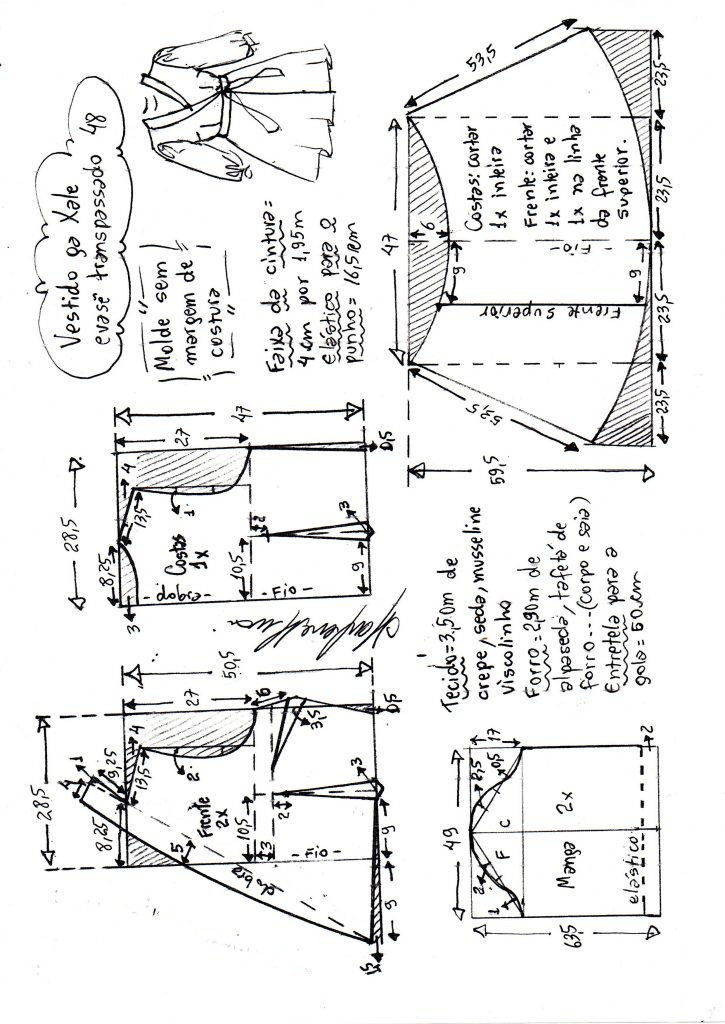 Vestido ga Xale
evasê transpassado 48
"Molde sem
margem de
costura"
Faixa da cintura=
4cm por 1,95m
elástico para o
punho= 16,5cm
47
53,5
53,5
6
9
9
Costas: cortar
1x inteira
Frente: cortar
1x inteira e
1x na linha
da frente
superior.
-Fio-
Frente Superior
23,5
23,5
23,5
23,5
59,5
28,5
8,25
4
13,5
1
3
Costas
1x
-dobra-
-Fio-
10,5
2
9
3
27
47
0,5
28,5
8,25
9,25
4
1
4
13,5
2
5
Frente
2x
dobra
-Fio-
10,5
3
2
9
9
3
1,5
27
6
3,5
50,5
0,5
Tecido=3,50m de
crepe, seda, musseline
viscolinho
Forro=2,90m de
alpaseda, tafetá de
forro...(corpo e saia)
Entretela para a
gola=50cm
49
17
2,5
0,5
2
1
F
C
Manga
2x
elástico
2
63,5